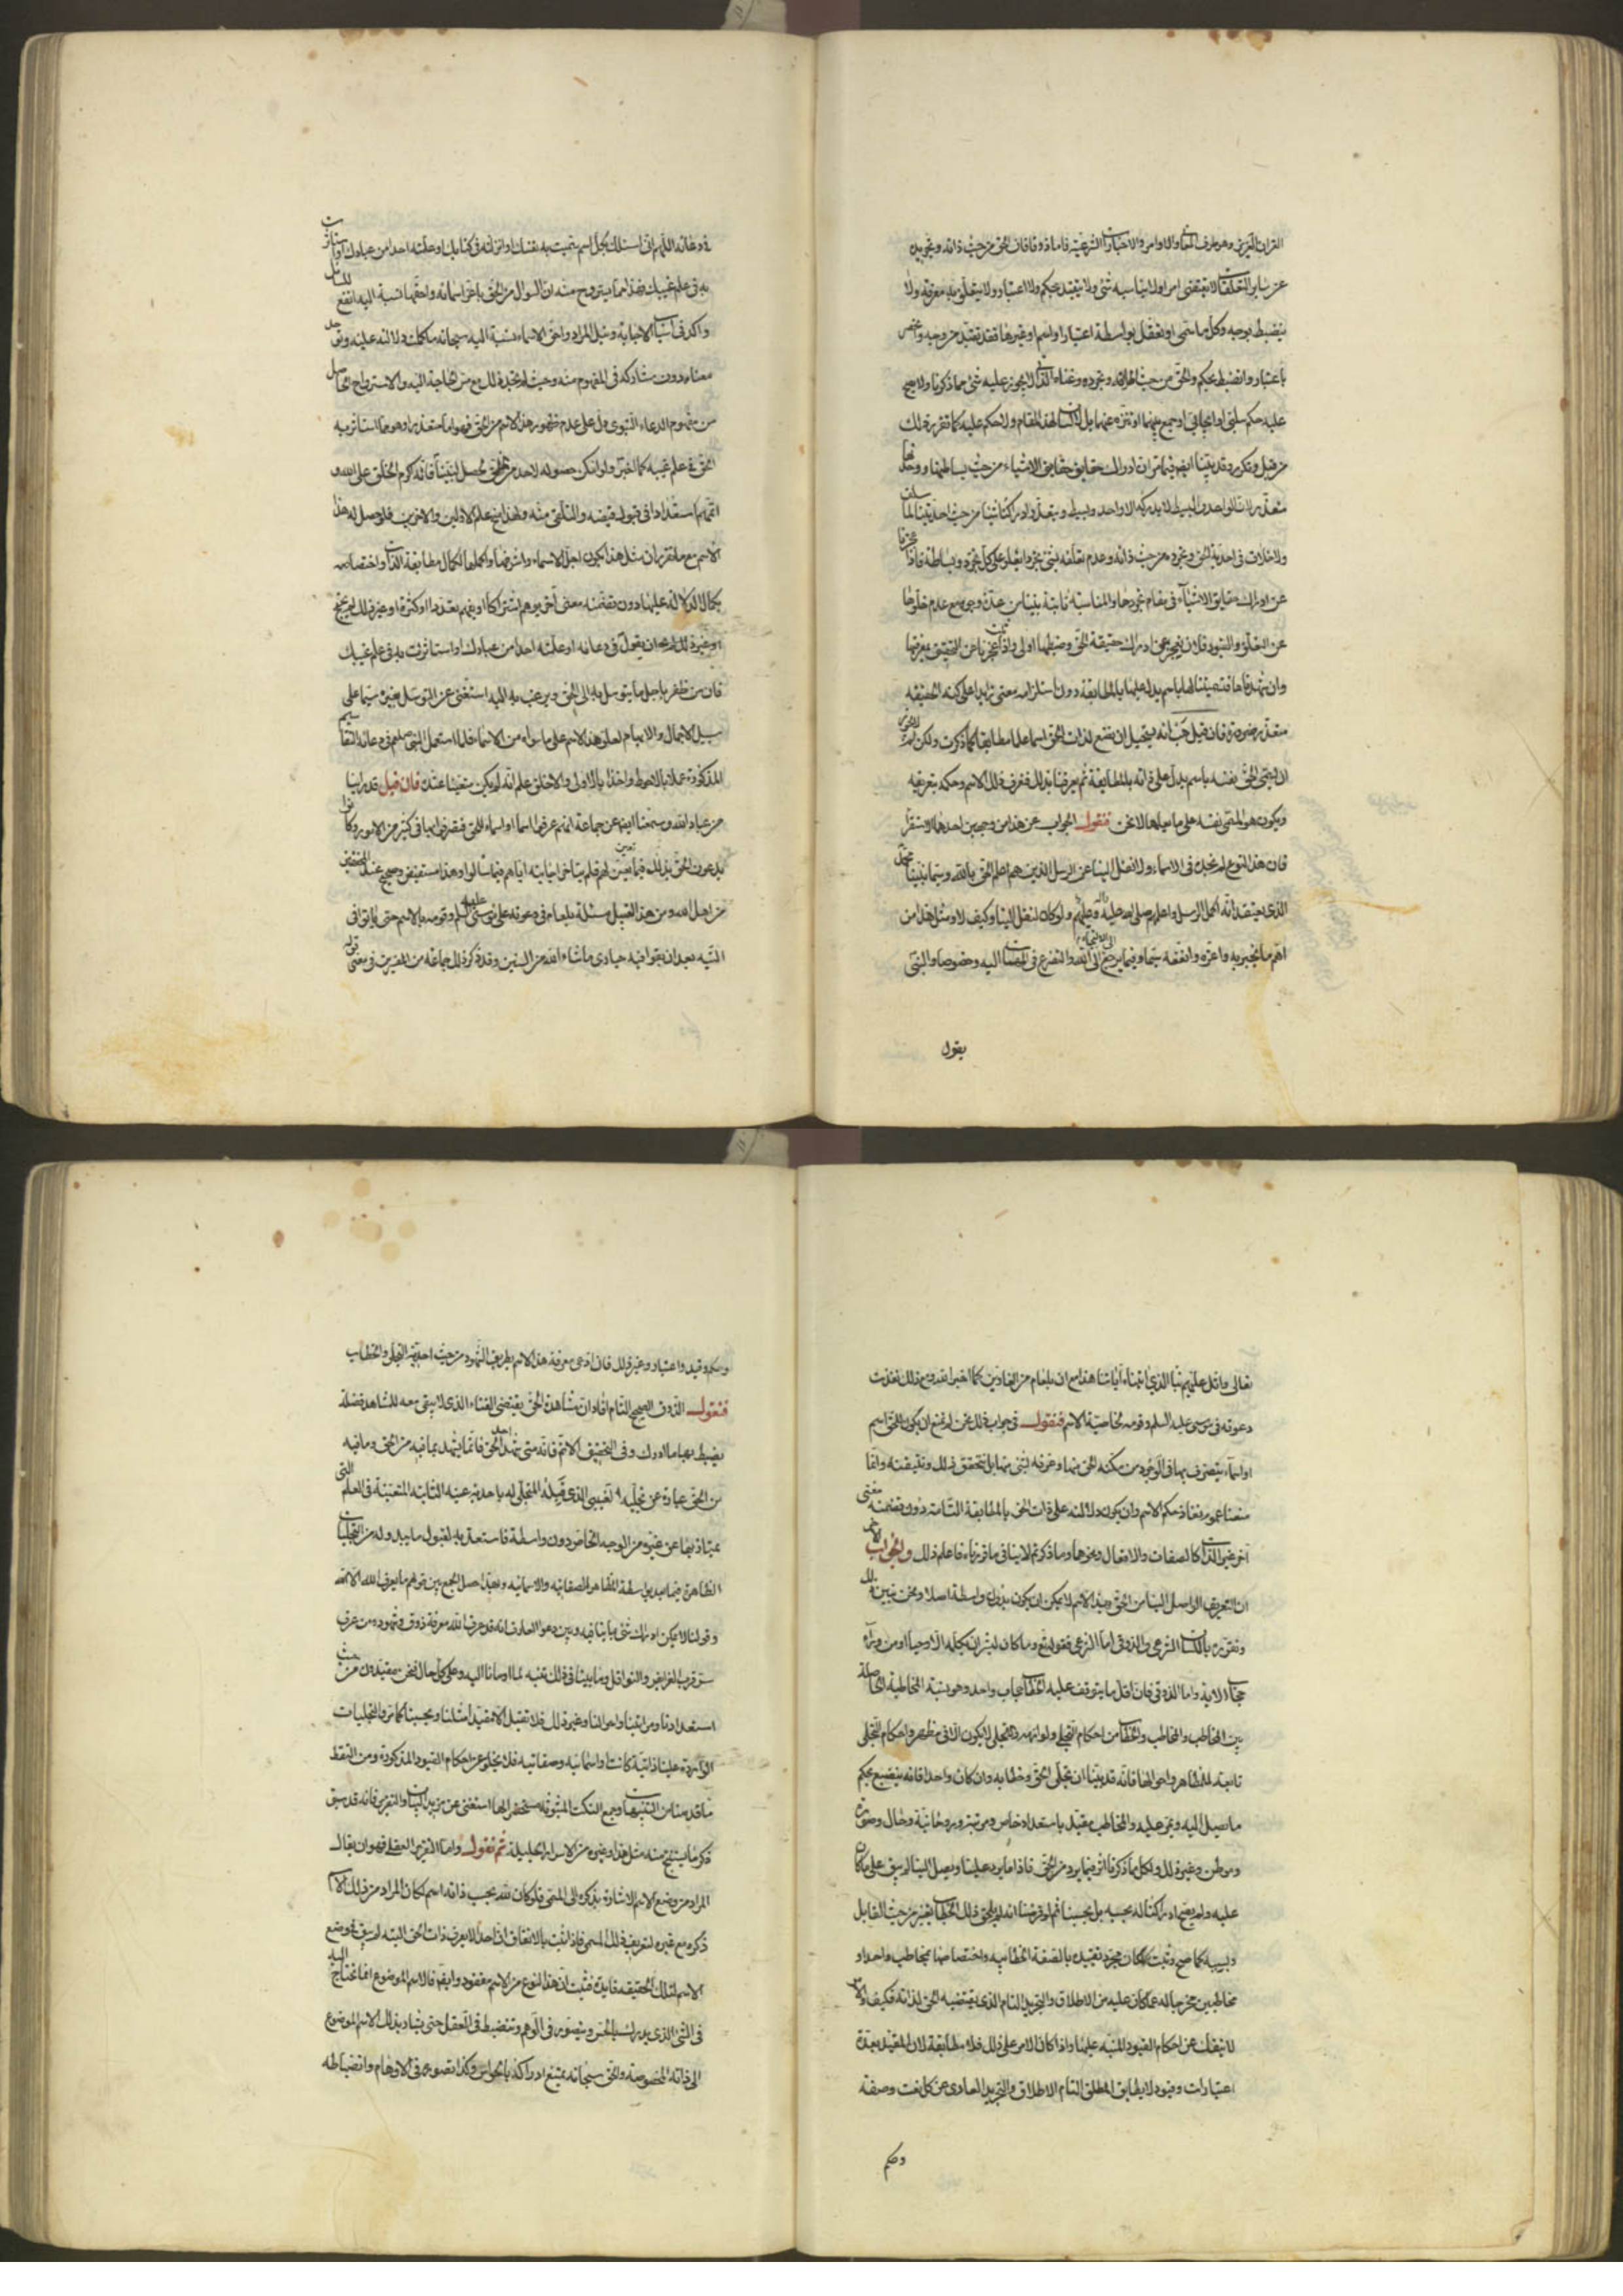 القران العزيز وهو ظرف والاوامر والاخبارات الشرعية فاما ذوقا فان الحق من حيث ذاته وتجريده
عن ساير التعلقات لا يقتضى امرا ولا يناسبه شئ ولا يتقيد بحكم ولا اعتبار ولا يتعلق به معرفة ولا
ينضبط بوجه وكل ما سمى او تعقل بواسطة اعتبار او اسم او غيرهما فقد تقيد من وجه وانحصر
باعتبار وانضبط بحكم والحق من حيث اطلاقه وتجرده وغناه الذاتى لا يجوز عليه شئ مما ذكرنا ولا يصح
عليه حكم سلبى او ايجابى او جمع بينهما او تنزه عنهما بل لا لسان لهذا المقام ولا حكم عليه كما تقرر ذلك
من قبل وتكرر وقد بينا ايضا فيما مر ان ادراك حقايق الاشياء من حيث بساطتها ووحدتها
متعذر لان الواحد والبسيط لا يدركه الا واحد وبسيط ويتعذر ادراكنا شيئا من حيث احديتنا لما سلف
ولا خلاف فى احدية الحق وتجرده من حيث ذاته وعدم تعلقه بشئ تجردا يعلو على كل تجرد وبساطة فاذا عجزنا
عن ادراك حقايق الاشياء فى مقام تجردها والمناسبة ثابتة بيننا من عدة وجوه مع عدم خلوها
عن التعلق والقيود فلان نعجز عن ادراك حقيقة الحق وضبطها اولى واذا ثبت عجزنا عن التحقيق بمعرفتها
وان شهدناها فتسميتنا لها باسم يدل عليها بالمطابقة دون استلزامه معنى زايدا على كنه الحقيقة
متعذر ضرورة فان قيل هب انه يستحيل ان نضع لذات الحق اسما علما مطابقا كما ذكرت ولكن لم لا يجوز
ان يسمى الحق نفسه باسم يدل على ذاته بالمطابقة ثم يعرفنا بذلك فنعرف ذلك الاسم وحكمه بتعريفه
ويكون هو المسمى نفسه على ما يعلمها لا نحن فنقول الجواب عن هذا من وجهين احدهما الاستقراء
فان هذا النوع لم نجده فى الاسماء ولا نقل الينا عن الرسل الذين هم اعلم الخلق بالله وسيما نبينا محمد
الذى نعتقد انه اكمل الرسل واعلمهم صلى الله عليه وعليهم ولو كان لنقل الينا وكيف لا ومثل هذا من
اهم ما يخبر به واعزه وانفعه سيما فيما يرجع الى الالتجاء الى الله والتضرع فى المهمات اليه وخصوصا والنبى
يقول
فى دعائه اللهم انى اسئلك بكل اسم سميت به نفسك او انزلته فى كتابك او علمته احدا من عبادك او استاثرت
به فى علم غيبك فهذا مما يستروح منه ان السوال من الحق باعز اسمائه واحقها نسبة اليه انفع للسائل
واكد فى اسباب الاجابة ونيل المراد واحق الاسماء نسبة اليه سبحانه ما كملت دلالته عليه وتوحد
معناه دون مشاركة فى المفهوم منه وحيث لم نجد ذلك مع مس الحاجة اليه والاسترواح الحاصل
من مفهوم الدعاء النبوى دل على عدم ظهور هذا الاسم من الحق فهو اما متعذر او هو مما استاثر به
الحق فى علم غيبه كما اخبر ولو امكن حصوله لاحد من الخلق لحصل لنبينا فانه اكرم الخلق على الله و
اتمهم استعدادا فى قبول فيضه والتلقى منه ولهذا منح علم الاولين والاخرين فلو حصل له هذا
الاسم مع ما تقرر ان مثل هذا يكون اجل الاسماء واشرفها واكملها لكمال مطابقة الذات واختصاصه
بكمال الدلالة عليها دون تضمنه معنى اخر يوهم اشتراكا او يفهم تعددا او كثرة او غير ذلك لم يحتج
ان يقول فى دعائه او علمته احدا من عبادك او استاثرت به فى علم غيبك
فان من ظفر باجل ما يتوسل به الى الحق ويرغب به اليه استغنى عن التوسل بغيره سيما على
سبيل الاجمال والابهام لعلو هذا الاسم على ما سواه من الاسماء فلما استعمل النبى صلعم فى دعائه التقاسيم
المذكورة عملا بالاحوط واخذا بالاولى والاخلق علم انه لم يكن متعينا عنده فان قيل قد راينا
من عباد الله وسمعنا ايضا عن جماعة انهم عرفوا اسما او اسماء للحق فتصرفوا بها فى كثير من الامور وكانوا
يدعون الحق بذلك فيما تعين لهم فلم يتاخر اجابته اياهم فيما سالوا وهذا مستفيض وصحيح عند المحققين
من اهل الله ومن هذا القبيل مسئلة بلعام فى دعوته على موسى عليه السلم وقومه بالاسم حتى ماتوا فى
التيه بعد ان بقوا فيه حيارى ما شاء الله من السنين وقد ذكر ذلك جماعة من المفسرين فى معنى قوله
تعالى واتل عليهم نبا الذى اتيناه اياتنا هذا مع ان بلعام من الغاوين كما اخبر الله ومع ذلك نفذت
دعوته فى موسى عليه السلم وقومه بخاصية الاسم فنقول فى جواب ذلك نحن لم نمنع ان يكون للحق اسم
او اسماء يتصرف بها فى الوجود من مكنه الحق منها وعرفه بشئ منها بل نتحقق ذلك ونتيقنه وانما
منعنا عموم نفاذ حكم الاسم وان يكون دلالته على ذات الحق بالمطابقة التامة دون تضمنه معنى
اخر غير الذات كالصفات والافعال ونحوها وما ذكرتم لا ينافى ما قررناه فاعلم ذلك والجواب الاخر
ان التعريف الواصل الينا من الحق بهذا الاسم لا يمكن ان يكون بدون واسطة اصلا ونحن نبين ذلك
ونقرره باللسان الشرعى والذوقى اما الشرعى فقوله تع وما كان لبشر ان يكلمه الله الا وحيا او من وراء
حجاب الاية واما الذوقى فان اقل ما يتوقف عليه الخطاب حجاب واحد وهو نسبة المخاطبة الحاصلة
بين المخاطب والمخاطب والخطاب من احكام التجلى ولوازمه والتجلى لا يكون الا فى مظهر واحكام التجلى
تابعة للمظاهر واحوالها فانه قد بينا ان تجلى الحق وخطابه وان كان واحدا فانه ينصبغ بحكم
ما يصل اليه ويمر عليه والمخاطب مقيد باستعداد خاص ومرتبة وروحانية وحال وصورة
وموطن وغير ذلك ولكل مما ذكرنا اثر فيما يرد من الحق فاذا ما يرد علينا ويصل الينا لم يبق على ما كان
عليه ولم يصح ادراكنا له بحسبه بل بحسبنا ثم لو فرضنا انه لم يلحق ذلك الخطاب تغير من حيث القابل
ونسبه كما صح وثبت لكان مجرد تقييده بالصفة الخطابية واختصاصها بمخاطب واحد او
مخاطبين مخرجا له عما كان عليه من الاطلاق والتجريد التام الذى يقتضيه الحق لذاته فكيف والامر
لا ينفك عن احكام القيود المنبه عليها واذا كان الامر على ذلك فلا مطابقة لان المقيد بعدة
اعتبارات وقيود لا يطابق المطلق التام الاطلاق والتجريد العارى عن كل نعت وصفة
وحكم
وحكم وقيد واعتبار وغير ذلك فان ادعى معرفة هذا الاسم بطريق الشهود من حيث احدية التجلى والخطاب
فنقول الذوق الصحيح التام افاد ان مشاهدة الحق يقتضى الفناء الذى لا يبقى معه للمشاهد فضلة
يضبط بها ما ادرك وفى التحقيق الاتم انه متى شهد احد الحق فانما يشهد بما فيه من الحق وما فيه
من الحق عبارة عن تجليه الغيبى الذى قبله المتجلى له باحدية عينه الثابتة المتعينة فى العلم التى
يمتاز بها عن غيره من الوجه الخاص دون واسطة فاستعد به لقبول ما يبدو له من التجليات
الظاهرة فيما بعد بواسطة المظاهر الصفاتية والاسمائية وبهذا حصل الجمع بين قولهم ما يعرف الله الا الله
وقولنا لا يمكن ادراك شئ بما ينافيه وبين دعوى العارف انه قد عرف الله معرفة ذوق وشهود ومن عرف
سر قرب الفرايض والنوافل وما بينا فى ذلك تنبه لما اومانا اليه وعلى كل حال فنحن مقيدون من حيث
استعدادنا ومراتبنا واحوالنا وغير ذلك فلا نقبل الا مقيدا مثلنا وبحسبنا كما مر والتجليات
الواردة علينا ذاتية كانت او اسمائية وصفاتية فلا يخلو عن احكام القيود المذكورة ومن التقط
ما قدمنا من التنبيهات وجمع النكت المبثوثة مستحضرا لها استغنى عن مزيد البيان والتقرير فانه قد سبق
ذكر ما يستنتج منه مثل هذا وغيره من الاسرار الجليلة ثم نقول واما التقرير العقلى فهو ان يقال
المراد من وضع الاسم الاشارة بذكره الى المسمى فلو كان لله بحسب ذاته اسم لكان المراد من ذلك الاسم
ذكره مع غيره لتعريف ذلك المسمى فاذا ثبت بالاتفاق ان احدا لا يعرف ذات الحق البتة لم يبق فى وضع
الاسم لتلك الحقيقة فايدة فثبت ان هذا النوع من الاسم مفقود وايضا فالاسم الموضوع انما يحتاج اليه
فى الشئ الذى يدرك بالحس ويتصور فى الوهم وينضبط فى العقل حتى يشار بذلك الاسم الموضوع
الى ذاته المخصوصة والحق سبحانه يمتنع ادراكه بالحواس وكذا تصوره فى الاوهام وانضباطه